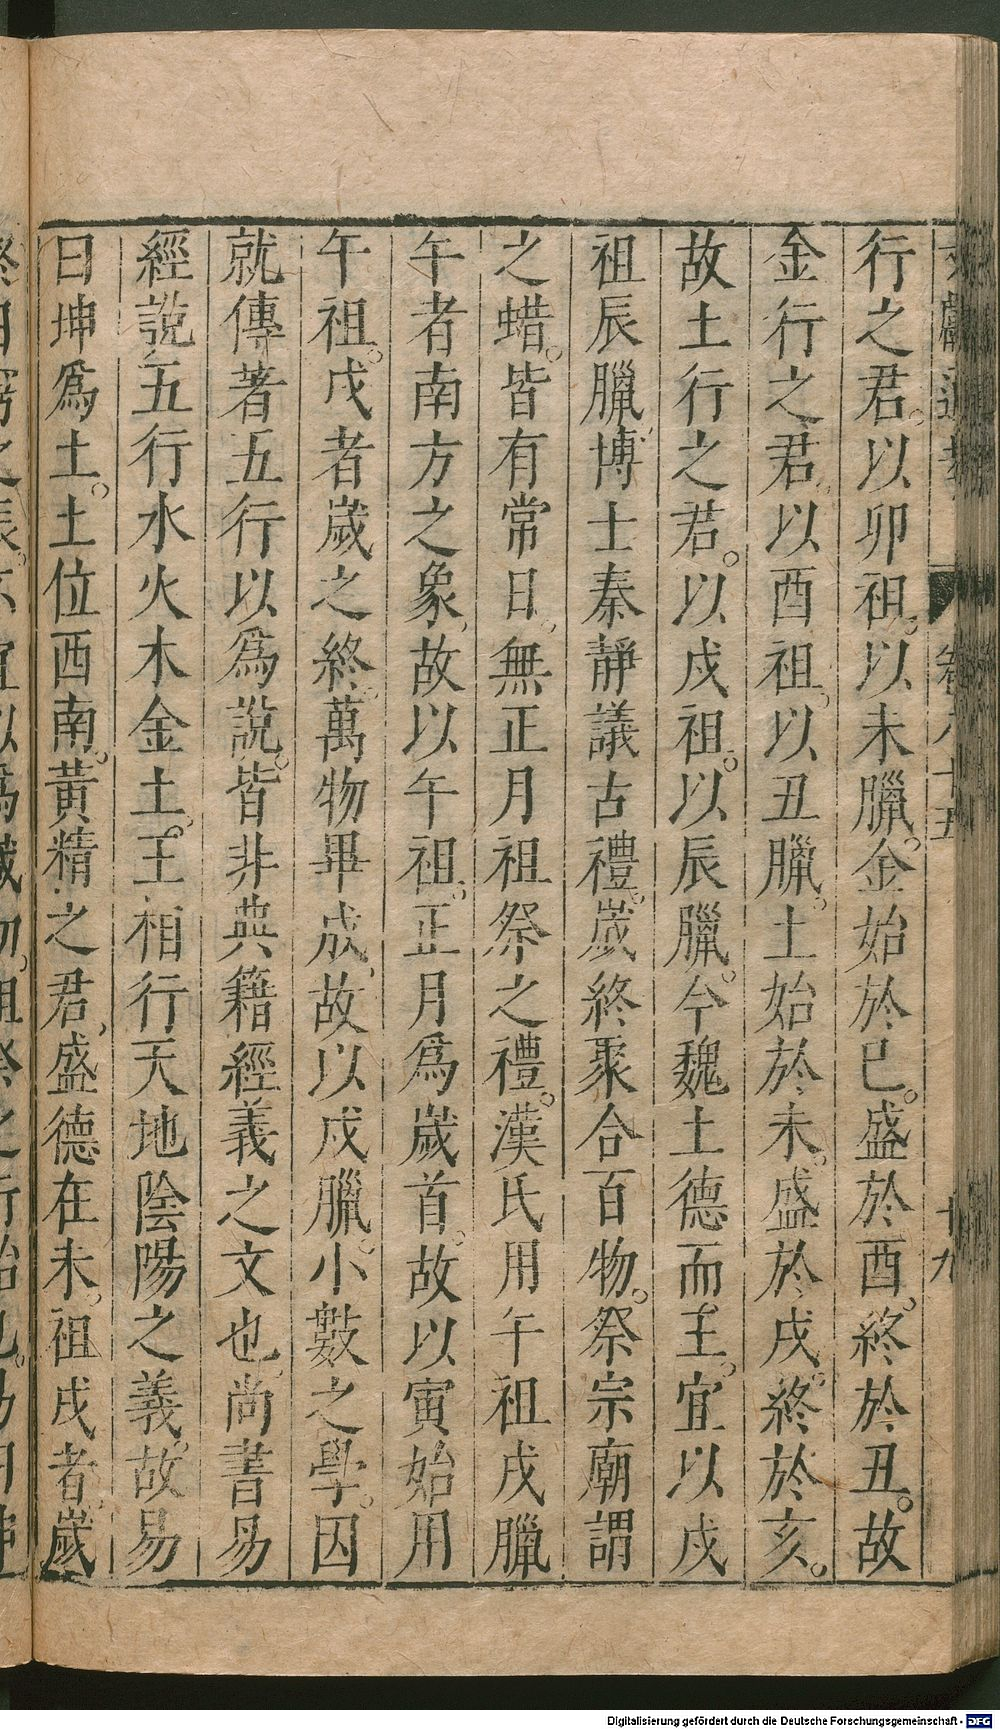 行之君。以卯祖。以未臘。金始於巳。盛於酉。終於丑。故
金行之君。以酉祖。以丑臘。土始於未。盛於戌。終於亥。
故土行之君。以戌祖。以辰臘。今魏土德而王。宜以戌
祖辰臘。博士秦靜議古禮。歲終聚合百物。祭宗廟謂
之蜡。皆有常日。無正月祖祭之禮。漢氏用午祖戌臘
午者南方之象。故以午祖。正月爲歲首。故以寅始用
午祖。戌者歲之終。萬物畢成。故以戌臘。小數之學。因
就傳著五行以爲說。皆非典籍經義之文也。尚書易
經說五行水火木金土。王相行天地陰陽之義。故易
曰坤爲土。土位西南。黃精之君。盛德在未。祖戌者。歲
卷八十五
十九
Digitalisierung gefördert durch die Deutsche Forschungsgemeinschaft - DFG